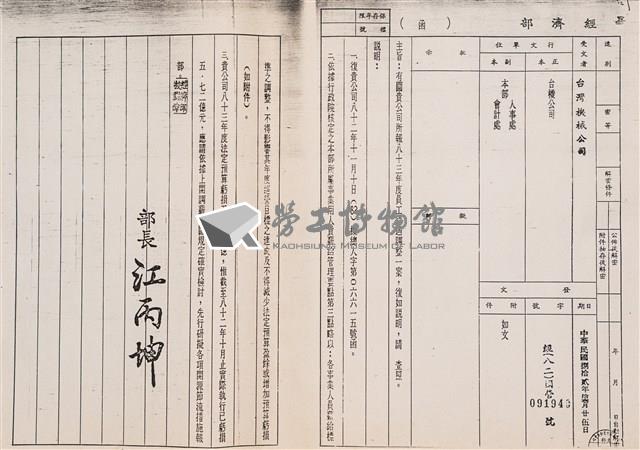 經濟部
（函）
保存年限
檔號
速別
密等
解密條件
公佈後解密
附件抽存後解密
年 月 日
受文者
台灣機械公司
行文單位
正本
副本
台機公司
本部 人事處
會計處
批示
擬辦
發文
日期
字號
附件
中華民國捌拾貳年
廿伍日
091943
號
如文
主旨：有關貴公司所報八十三年度員工
調整一案，復如說明，請 查照。
說明：
一、復貴公司八十二年十一月十日
人字第０六六一五號函。
二、依據行政院核定之本部所屬事業用人費
管理要點第三點略以：各事業人員
準之調整，不得影響其年度
目標之達成及不得減少法定預算盈餘或增加預算虧損
（如附件）。
三、貴公司八十三年度法定預算虧損
惟截至八十二年十月止實際執行已虧損
五．七二億元，應請依據上開
規定確實檢討，先行研擬各項開源節流措施報
部
部長 江丙坤
勞工博物館
KAOHSIUNG MUSEUM OF LABOR